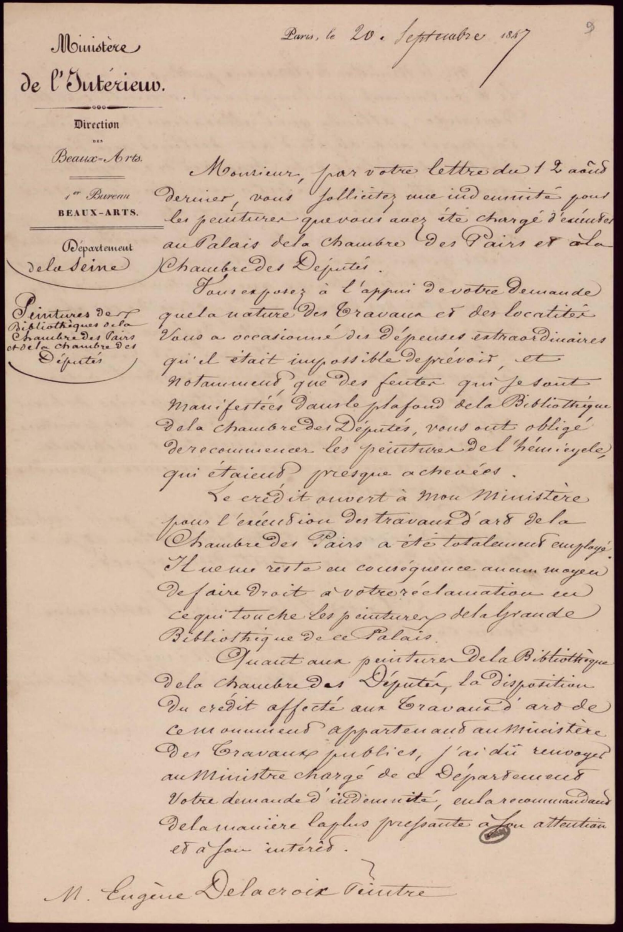 9
Paris, le 20. Septembre 1847
Ministère
de l'Intérieur.
Direction
DES
Beaux-Arts.
1er Bureau
BEAUX-ARTS.
Département
de la Seine
Peintures des
Bibliothèques de la
Chambre des Pairs
et de la chambre des
Députés
Monsieur, par votre lettre du 12 août
dernier, vous sollicitez une indemnité pour
les peintures que vous avez été chargé d'exécuter
au Palais de la Chambre des Pairs et à la
Chambre des Députés.
Vous exposez à l'appui de votre demande
que la nature des travaux et des localités
vous a occasionné des dépenses extraordinaires
qu'il était impossible de prévoir, et
notamment que des fentes qui se sont
manifestées dans le plafond de la Bibliothèque
de la chambre des Députés, vous ont obligé
de recommencer les peintures de l'hémicycle,
qui étaient presque achevées.
Le crédit ouvert à mon Ministère
pour l'exécution des travaux d'art de la
Chambre des Pairs a été totalement employé.
Il ne me reste en conséquence aucun moyen
de faire droit à votre réclamation en
ce qui touche les peintures de la Grande
Bibliothèque de ce Palais.
Quant aux peintures de la Bibliothèque
de la chambre des Députés, la disposition
du crédit affecté aux travaux d'art de
ce monument appartenant au Ministère
des Travaux publics, j'ai dû renvoyer
au Ministre chargé de ce Département
votre demande d'indemnité, en la recommandant
de la manière la plus pressante à son attention
et à son intérêt.
M. Eugène Delacroix Peintre